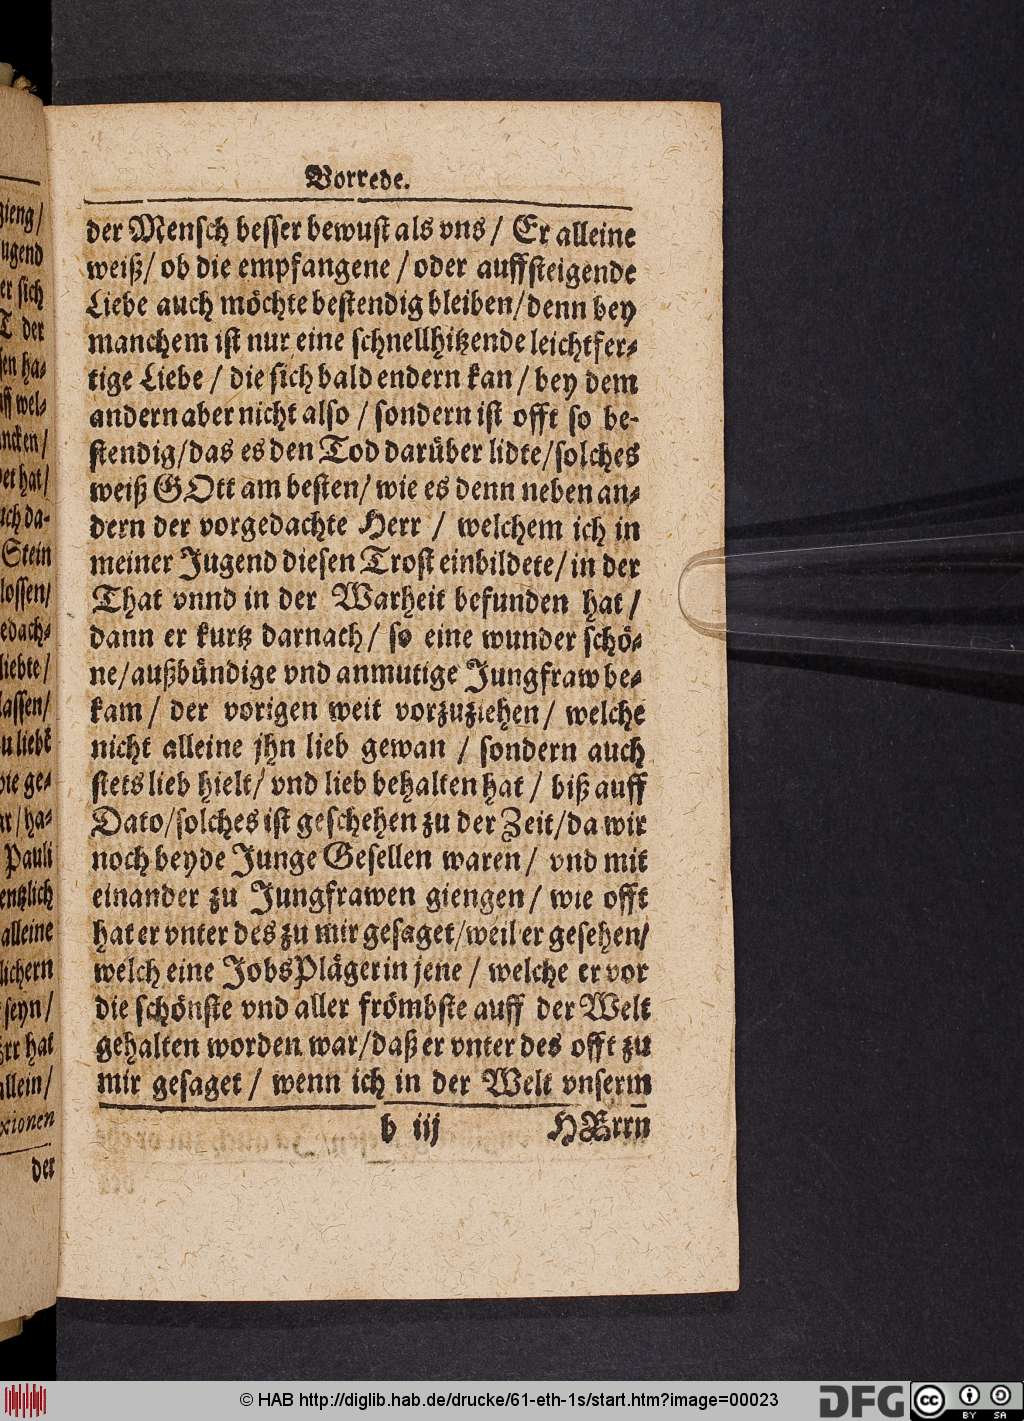 gieng/
ugend
er sich
T der
sen ha-
iff wel-
ncken/
bet hat/
uch da-
Stein
lossen/
edach-
liebte/
lassen/
u liebt
ote ge-
ar/ha-
Pauli
entzlich
alleine
lichern
seyn/
Err hat
allein/
xionen
der
Vorrede.
der Mensch besser bewust als vns / Er alleine
weiß/ ob die empfangene / oder auffsteigende
Liebe auch möchte bestendig bleiben/denn bey
manchem ist nur eine schnellhitzende leichtfer-
tige Liebe / die sich bald endern kan / bey dem
andern aber nicht also / sondern ist offt so be-
stendig/das es den Tod darüber lidte/solches
weiß GOtt am besten/ wie es denn neben an-
dern der vorgedachte Herr / welchem ich in
meiner Jugend diesen Trost einbildete/ in der
That vnnd in der Warheit befunden hat /
dann er kurtz darnach / so eine wunder schö-
ne/außbündige vnd anmutige Jungfraw be-
kam / der vorigen weit vorzuziehen / welche
nicht alleine jhn lieb gewan / sondern auch
stets lieb hielt/ vnd lieb behalten hat / biß auff
Dato/solches ist geschehen zu der Zeit/da wir
noch beyde Junge Gesellen waren / vnd mit
einander zu Jungfrawen giengen / wie offt
hat er vnter des zu mir gesaget/weil er gesehen/
welch eine JobsPlägerin jene / welche er vor
die schönste vnd aller frömbste auff der Welt
gehalten worden war/daß er vnter des offt zu
mir gesaget / wenn ich in der Welt vnserm
b iij HErrn
© HAB http://diglib.hab.de/drucke/61-eth-1s/start.htm?image=00023
DFG
cc
BY SA